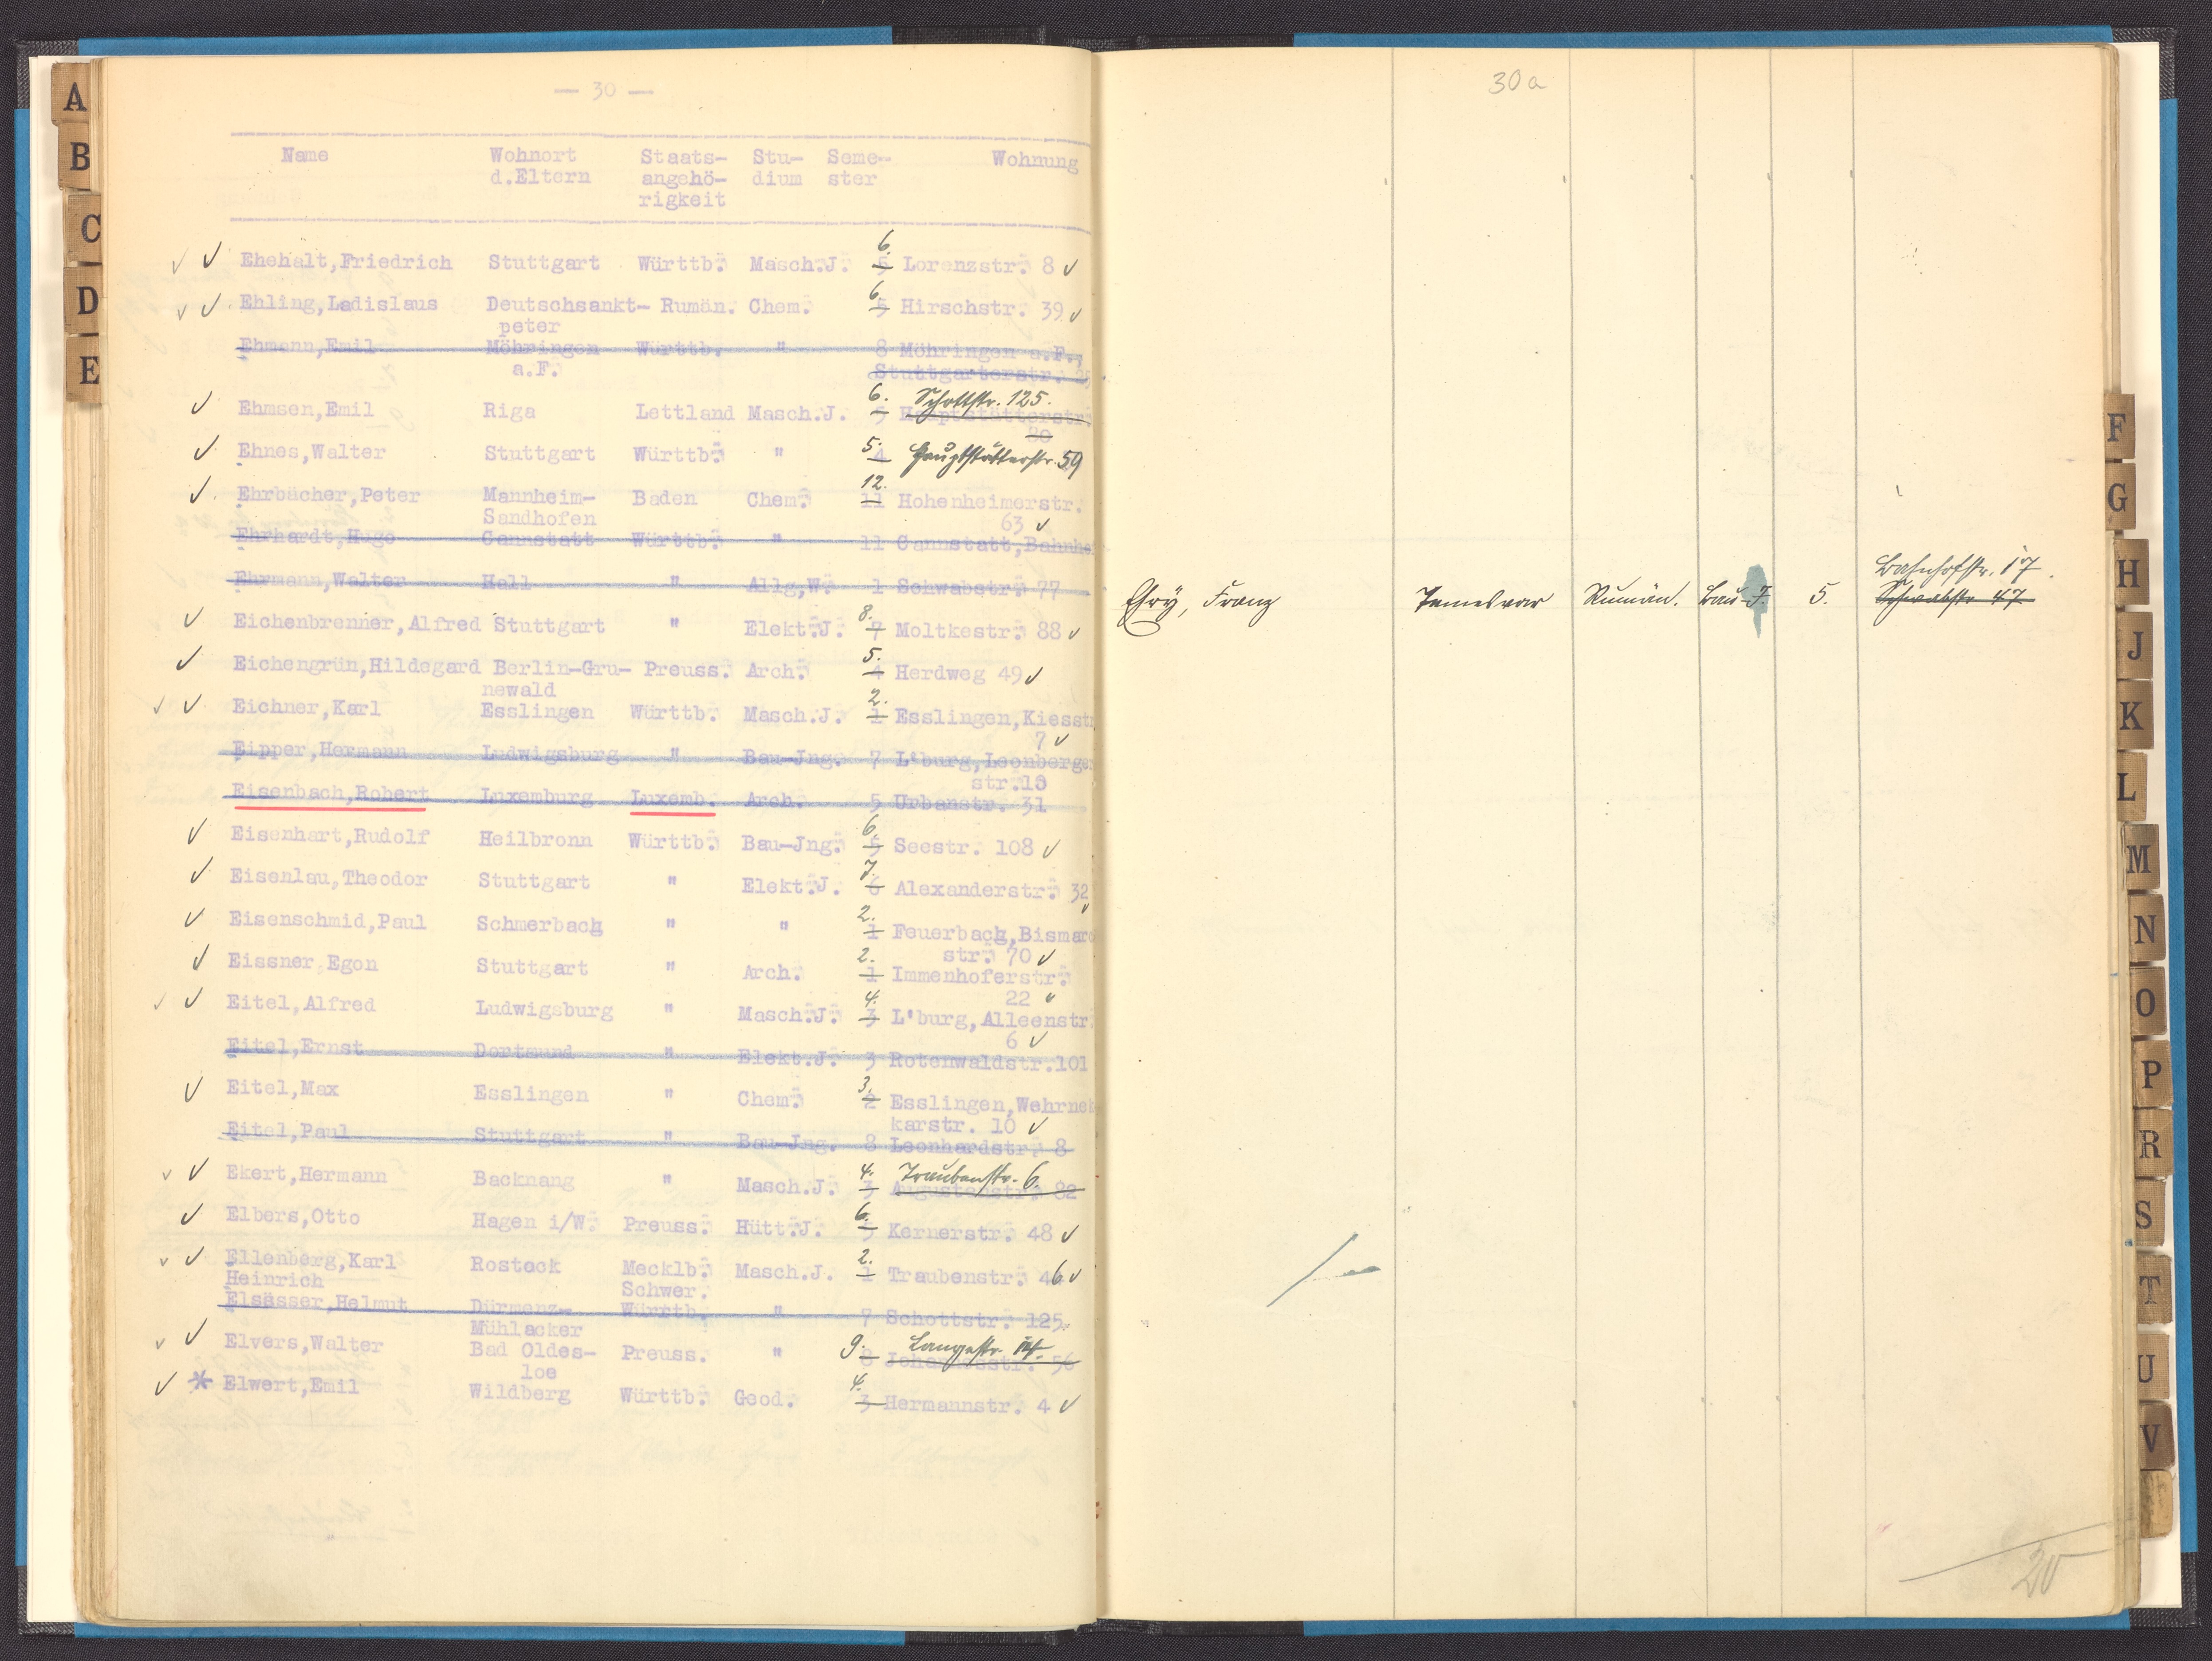 A
B
C
D
E
— 30 —
Name Wohnort Staats- Stu- Seme- Wohnung
d.Eltern angehö- dium ster
rigkeit
6.
Ehehalt,Friedrich Stuttgart Württb. Masch.J. 5 Lorenzstr. 8
6.
Ehling,Ladislaus Deutschsankt- Rumän. Chem. 5 Hirschstr. 39
peter
Ehmann,Emil Möhringen Württb. " 8 Möhringen a.F.,
a.F. Stuttgarterstr.
6. Schottstr. 125.
Ehmsen,Emil Riga Lettland Masch.J. 5 Hauptstätterstr.
80
5.
Ehnes,Walter Stuttgart Württb. " 4 Hauptstätterstr. 59
12.
Ehrbächer,Peter Mannheim- Baden Chem. 11 Hohenheimerstr.
Sandhofen 63
Ehrhardt,Hugo Cannstatt Württb. " 11 Cannstatt,Bahnho
Ehrmann,Walter Hall " Allg,W. 1 Schwabstr. 77
8.
Eichenbrenner,Alfred Stuttgart " Elekt.J. 7 Moltkestr. 88
5.
Eichengrün,Hildegard Berlin-Gru- Preuss. Arch. 4 Herdweg 49
newald
2.
Eichner,Karl Esslingen Württb. Masch.J. 1 Esslingen,Kiesstr
7
Eipper,Hermann Ludwigsburg " Bau-Jng. 7 L'burg,Leonberger
str.18
Eisenbach,Robert Luxemburg Luxemb. Arch. 5 Urbanstr. 31
6.
Eisenhart,Rudolf Heilbronn Württb. Bau-Jng. 5 Seestr. 108
7.
Eisenlau,Theodor Stuttgart " Elekt.J. 6 Alexanderstr. 32
2.
Eisenschmid,Paul Schmerbach " " 1 Feuerbach,Bismarc
str. 70
2.
Eissner,Egon Stuttgart " Arch. 1 Immenhoferstr.
22
4.
Eitel,Alfred Ludwigsburg " Masch.J. 3 L'burg,Alleenstr
6
Eitel,Ernst Dortmund " Elekt.J. 3 Rotenwaldstr.101
3.
Eitel,Max Esslingen " Chem. 2 Esslingen,Wehrnek
karstr. 10
Eitel,Paul Stuttgart " Bau-Jng. 8 Leonhardstr. 8
4. Traubenstr. 6.
Ekert,Hermann Backnang " Masch.J. 3 Augustenstr. 82
6.
Elbers,Otto Hagen i/W. Preuss. Hütt.J. 5 Kernerstr. 48
2.
Ellenberg,Karl Rostock Mecklb. Masch.J. 1 Traubenstr. 46
Heinrich Schwer.
Elsässer,Helmut Dürmenz- Württb. " 7 Schottstr. 125.
Mühlacker
9. Langestr.
Elvers,Walter Bad Oldes- Preuss. " 8 Johannesstr. 56
loe
4.
* Elwert,Emil Wildberg Württb. Geod. 3 Hermannstr. 4
30a
Bahnhofstr. 17.
Ehry, Franz Temesvar Rumän. Bau-J. 5. Schwabstr. 47
20
F
G
H
J
K
L
M
N
O
P
R
S
T
U
V